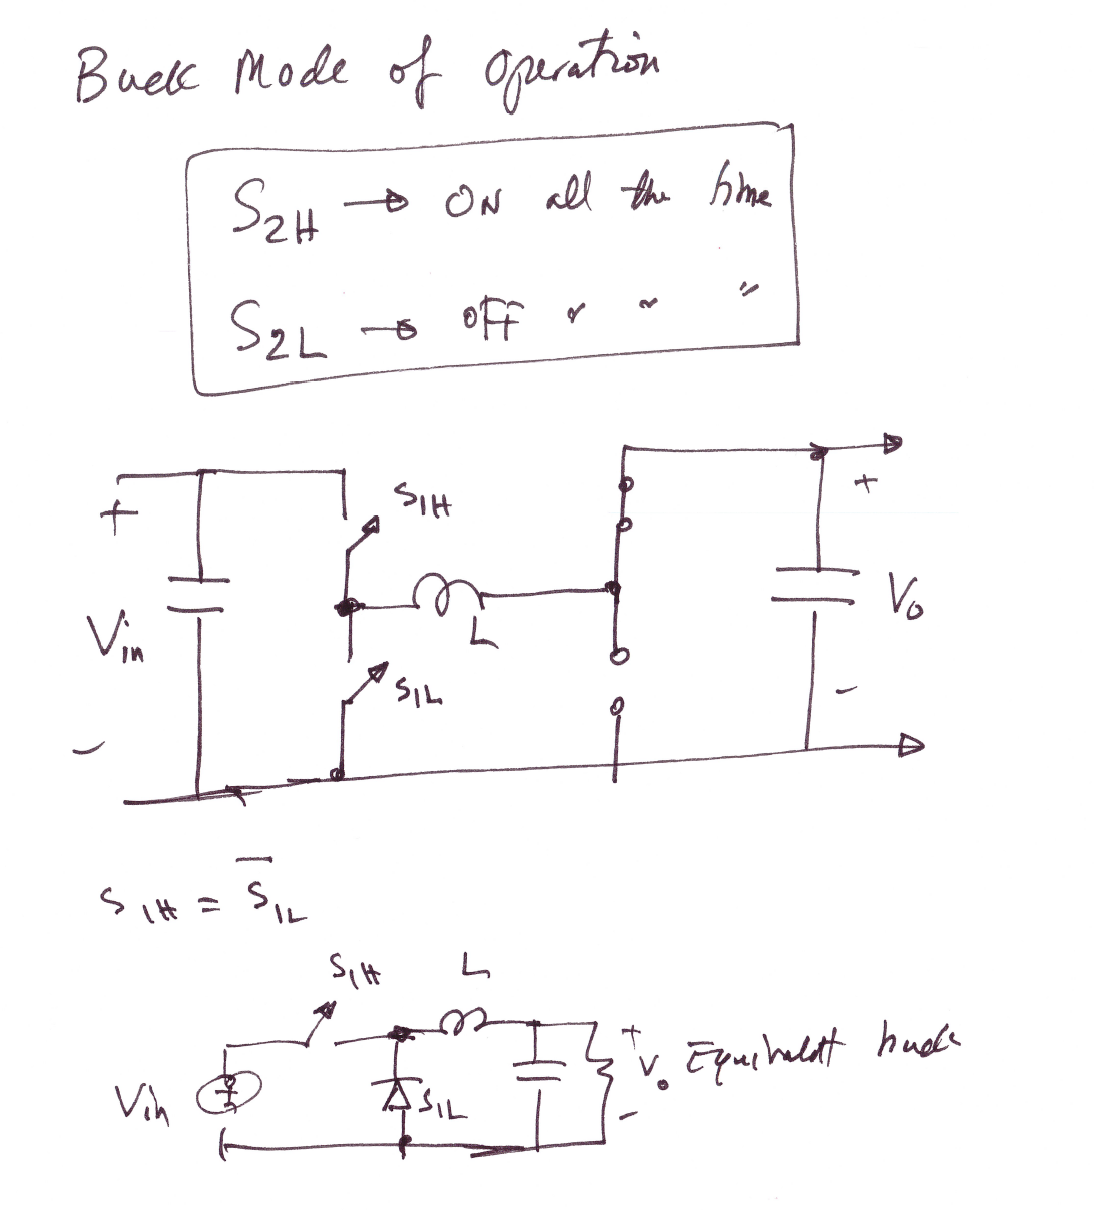 Buck Mode of Operation
S2H → ON all the time
S2L → OFF " " "
+
S1H
+
Vin
L
Vo
S1L
-
-
S1H = S̅1L
S1H
L
+
Vin
S1L
Vo Equivalent buck
-